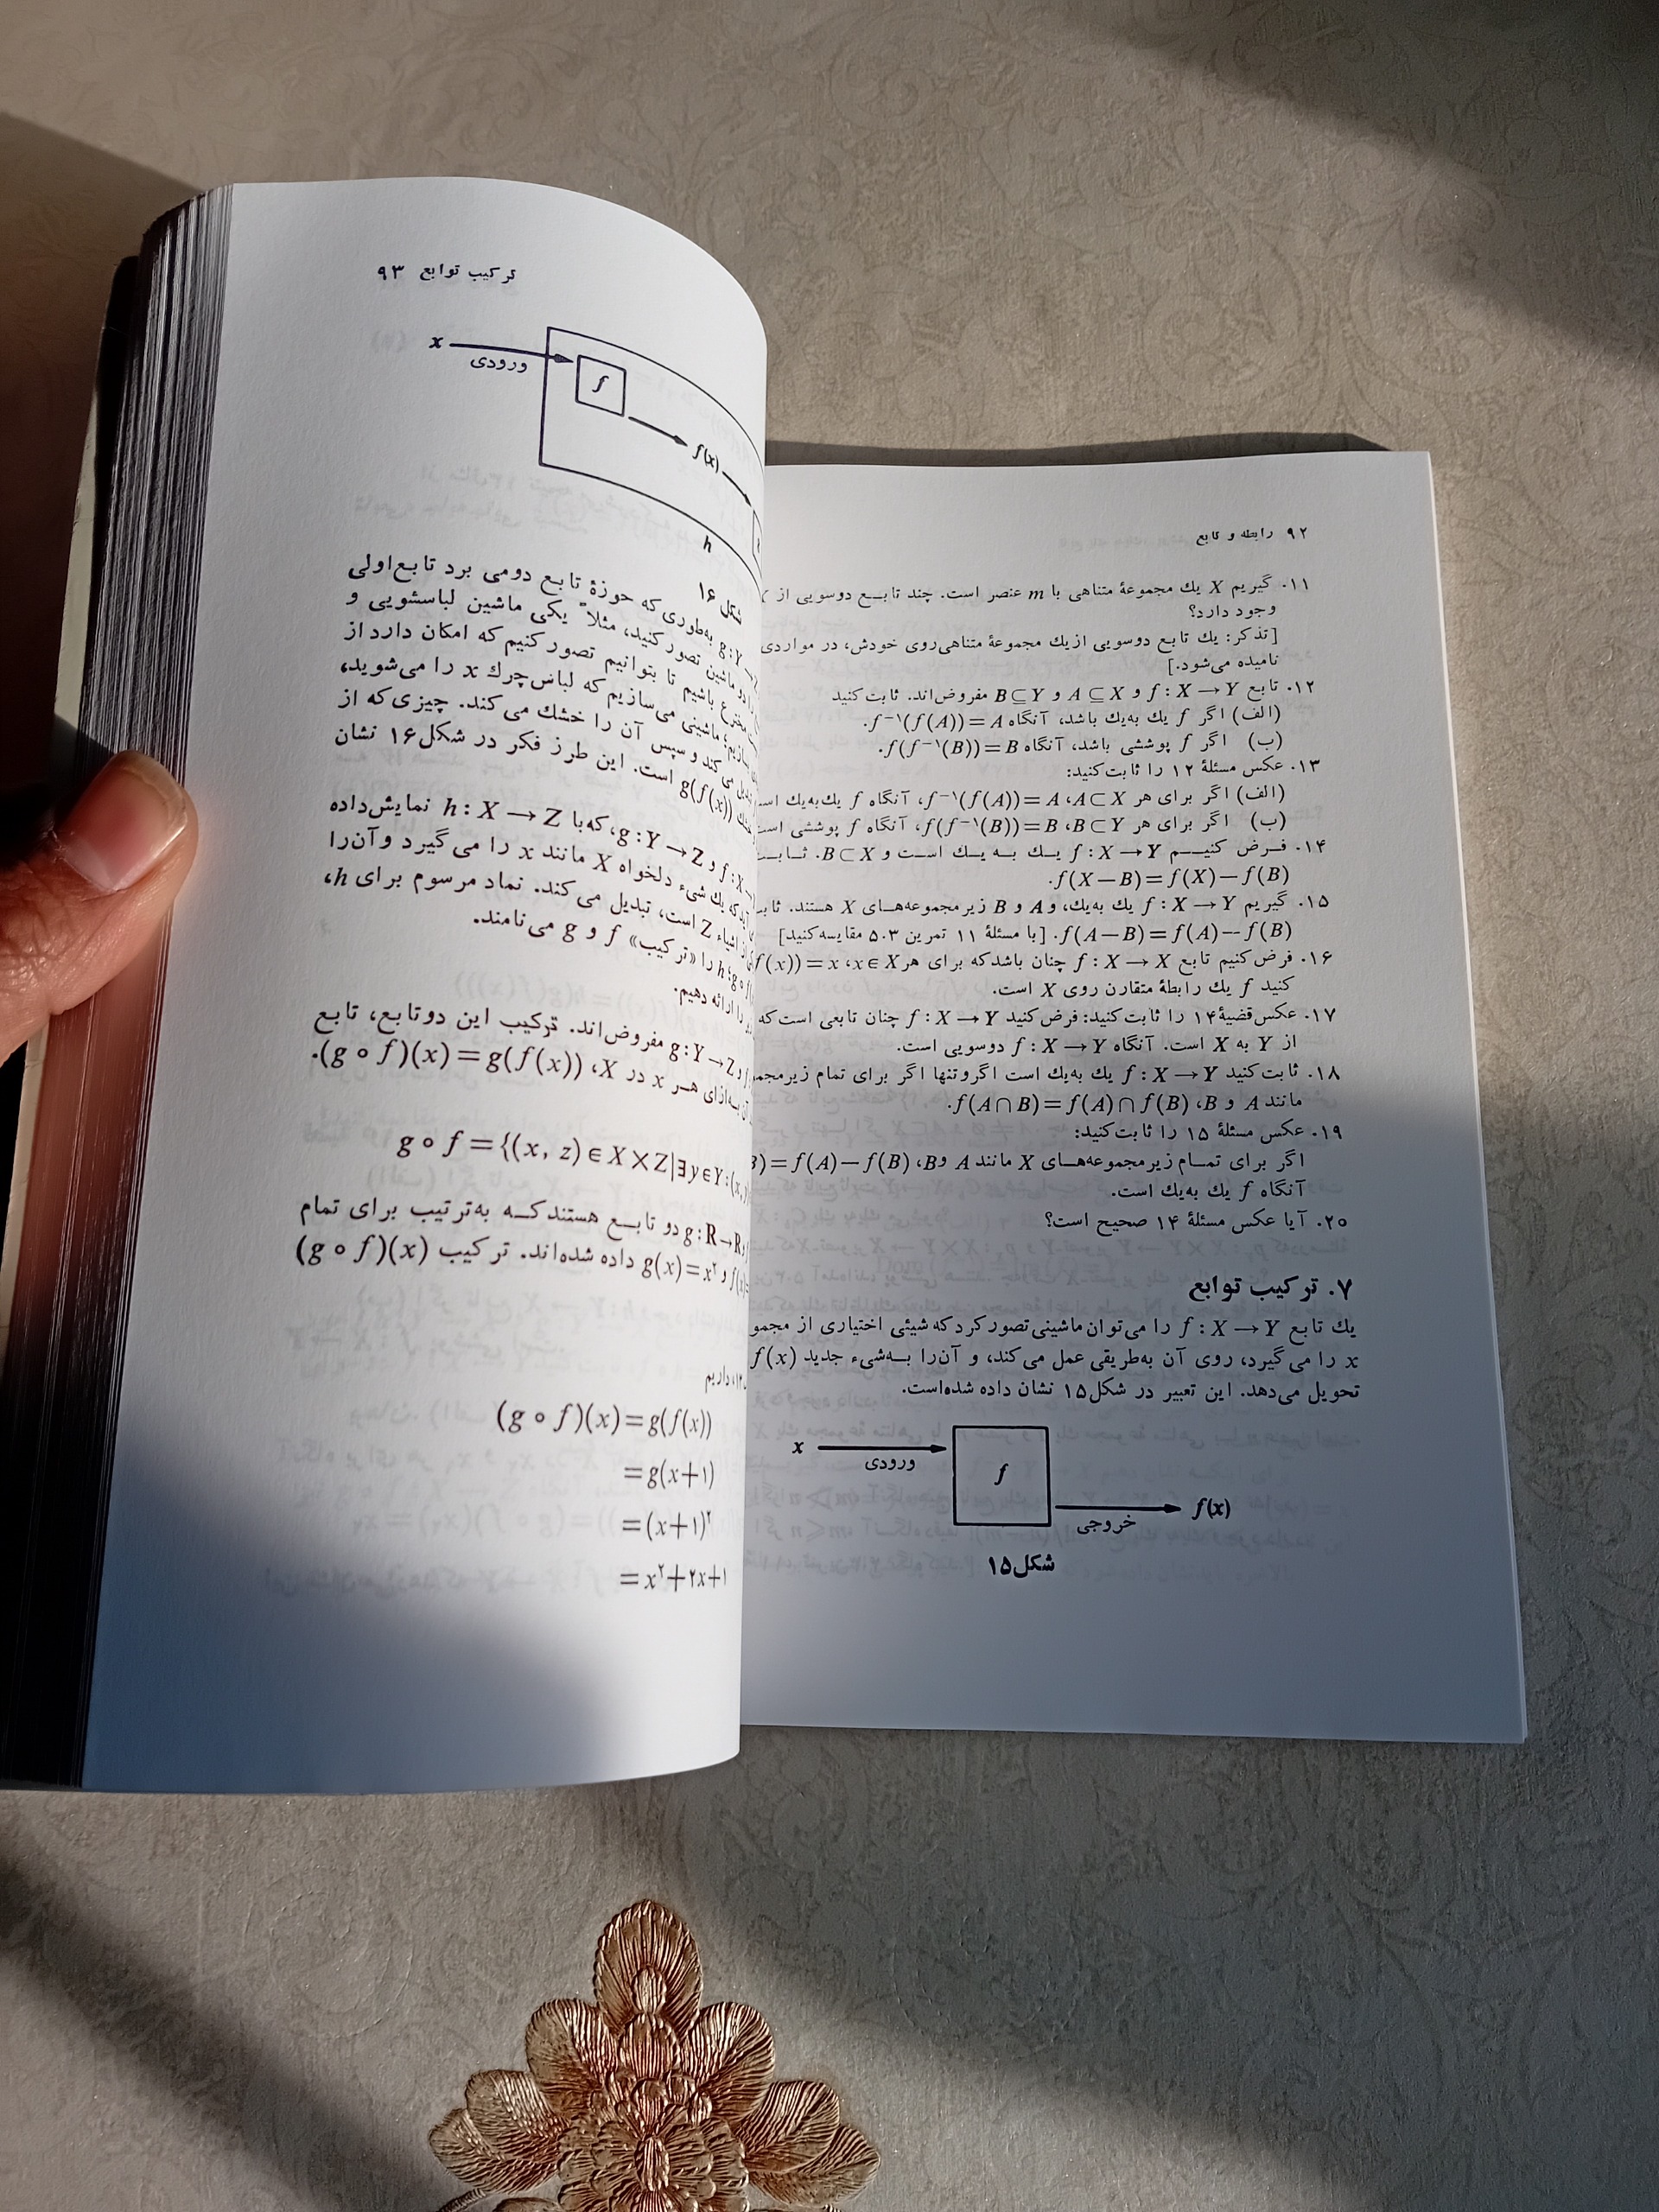 ۹۲ رابطه و تابع
۱۱. گیریم X یك مجموعهٔ متناهی با m عنصر است. چند تابع دوسویی از
وجود دارد؟
[تذکر: یك تابع دوسویی ازیك مجموعهٔ متناهی‌روی خودش، در مواردی
نامیده می‌شود.]
۱۲. تابع f : X → Y و A ⊆ X و B ⊆ Y مفروض‌اند. ثابت‌کنید
(الف) اگر f یك به‌یك باشد، آنگاه f⁻¹(f(A)) = A.
(ب) اگر f پوششی باشد، آنگاه f(f⁻¹(B)) = B.
۱۳. عکس مسئلهٔ ۱۲ را ثابت‌کنید:
(الف) اگر برای هر A ⊂ X، f⁻¹(f(A)) = A، آنگاه f یك‌به‌یك
(ب) اگر برای هر B ⊂ Y، f(f⁻¹(B)) = B، آنگاه f پوششی است
۱۴. فرض کنیم f : X → Y یك به یك است و B ⊂ X.
f(X − B) = f(X) − f(B).
۱۵. گیریم f : X → Y یك به‌یك، و A و B زیرمجموعه‌های X هستند.
f(A − B) = f(A) − f(B). [با مسئلهٔ ۱۱ تمرین ۵.۳ مقایسه‌کنید]
۱۶. فرض‌کنیم تابع f : X → X چنان باشدکه برای هر x ∈ X، f(x)) = x
کنید f یك رابطهٔ متقارن روی X است.
۱۷. عکس‌قضیهٔ ۱۴ را ثابت‌کنید: فرض‌کنید f : X → Y چنان تابعی است‌که
از Y به X است. آنگاه f : X → Y دوسویی است.
۱۸. ثابت‌کنید f : X → Y یك به‌یك است اگروتنها اگر برای تمام
مانند A و B، f(A ∩ B) = f(A) ∩ f(B).
۱۹. عکس مسئلهٔ ۱۵ را ثابت‌کنید:
اگر برای تمام زیرمجموعه‌های X مانند A و B، B) = f(A) − f(B)
آنگاه f یك به‌یك است.
۲۰. آیا عکس مسئلهٔ ۱۴ صحیح است؟
۷. ترکیب توابع
یك تابع f : X → Y را می‌توان ماشینی‌تصورکردکه شیئی اختیاری از
x را می‌گیرد، روی آن به‌طریقی عمل می‌کند، و آن‌را به‌شیء جدید f(x)
تحویل می‌دهد. این تعبیر در شکل۱۵ نشان داده شده‌است.
x
ورودی
f
خروجی
f(x)
شکل۱۵
ترکیب توابع ۹۳
x
ورودی
f
f(x)
h
شکل ۱۶
g : Y به‌طوری‌که حوزهٔ تابع دومی برد تابع‌اولی
دو ماشین تصورکنید، مثلاً یکی ماشین لباسشویی و
مخترع باشیم تا بتوانیم تصورکنیم که امکان دارد از
ماشینی می‌سازیم که لباس‌چرك x را می‌شوید،
می‌کند و سپس آن را خشك می‌کند. چیزی‌که از
g(f(x)) است. این طرز فکر در شکل۱۶ نشان
و g : Y → Z، که‌با h : X → Z نمایش‌داده
یك شیء دلخواه X مانند x را می‌گیرد وآن‌را
اشیاء Z است، تبدیل می‌کند. نماد مرسوم برای h،
h را «ترکیب» f و g می‌نامند.
را ارائه دهیم.
و g : Y → Z مفروض‌اند. ترکیب این دوتابع، تابع
به‌ازای هر x در X، (g ∘ f)(x) = g(f(x)).
g ∘ f = {(x, z) ∈ X × Z | ∃ y ∈ Y : (x,
g : R → R دو تابع هستندکه به‌ترتیب برای تمام
و g(x) = x² داده شده‌اند. ترکیب (g ∘ f)(x)
داریم
(g ∘ f)(x) = g(f(x))
= g(x+۱)
= (x+۱)²
= x²+۲x+۱